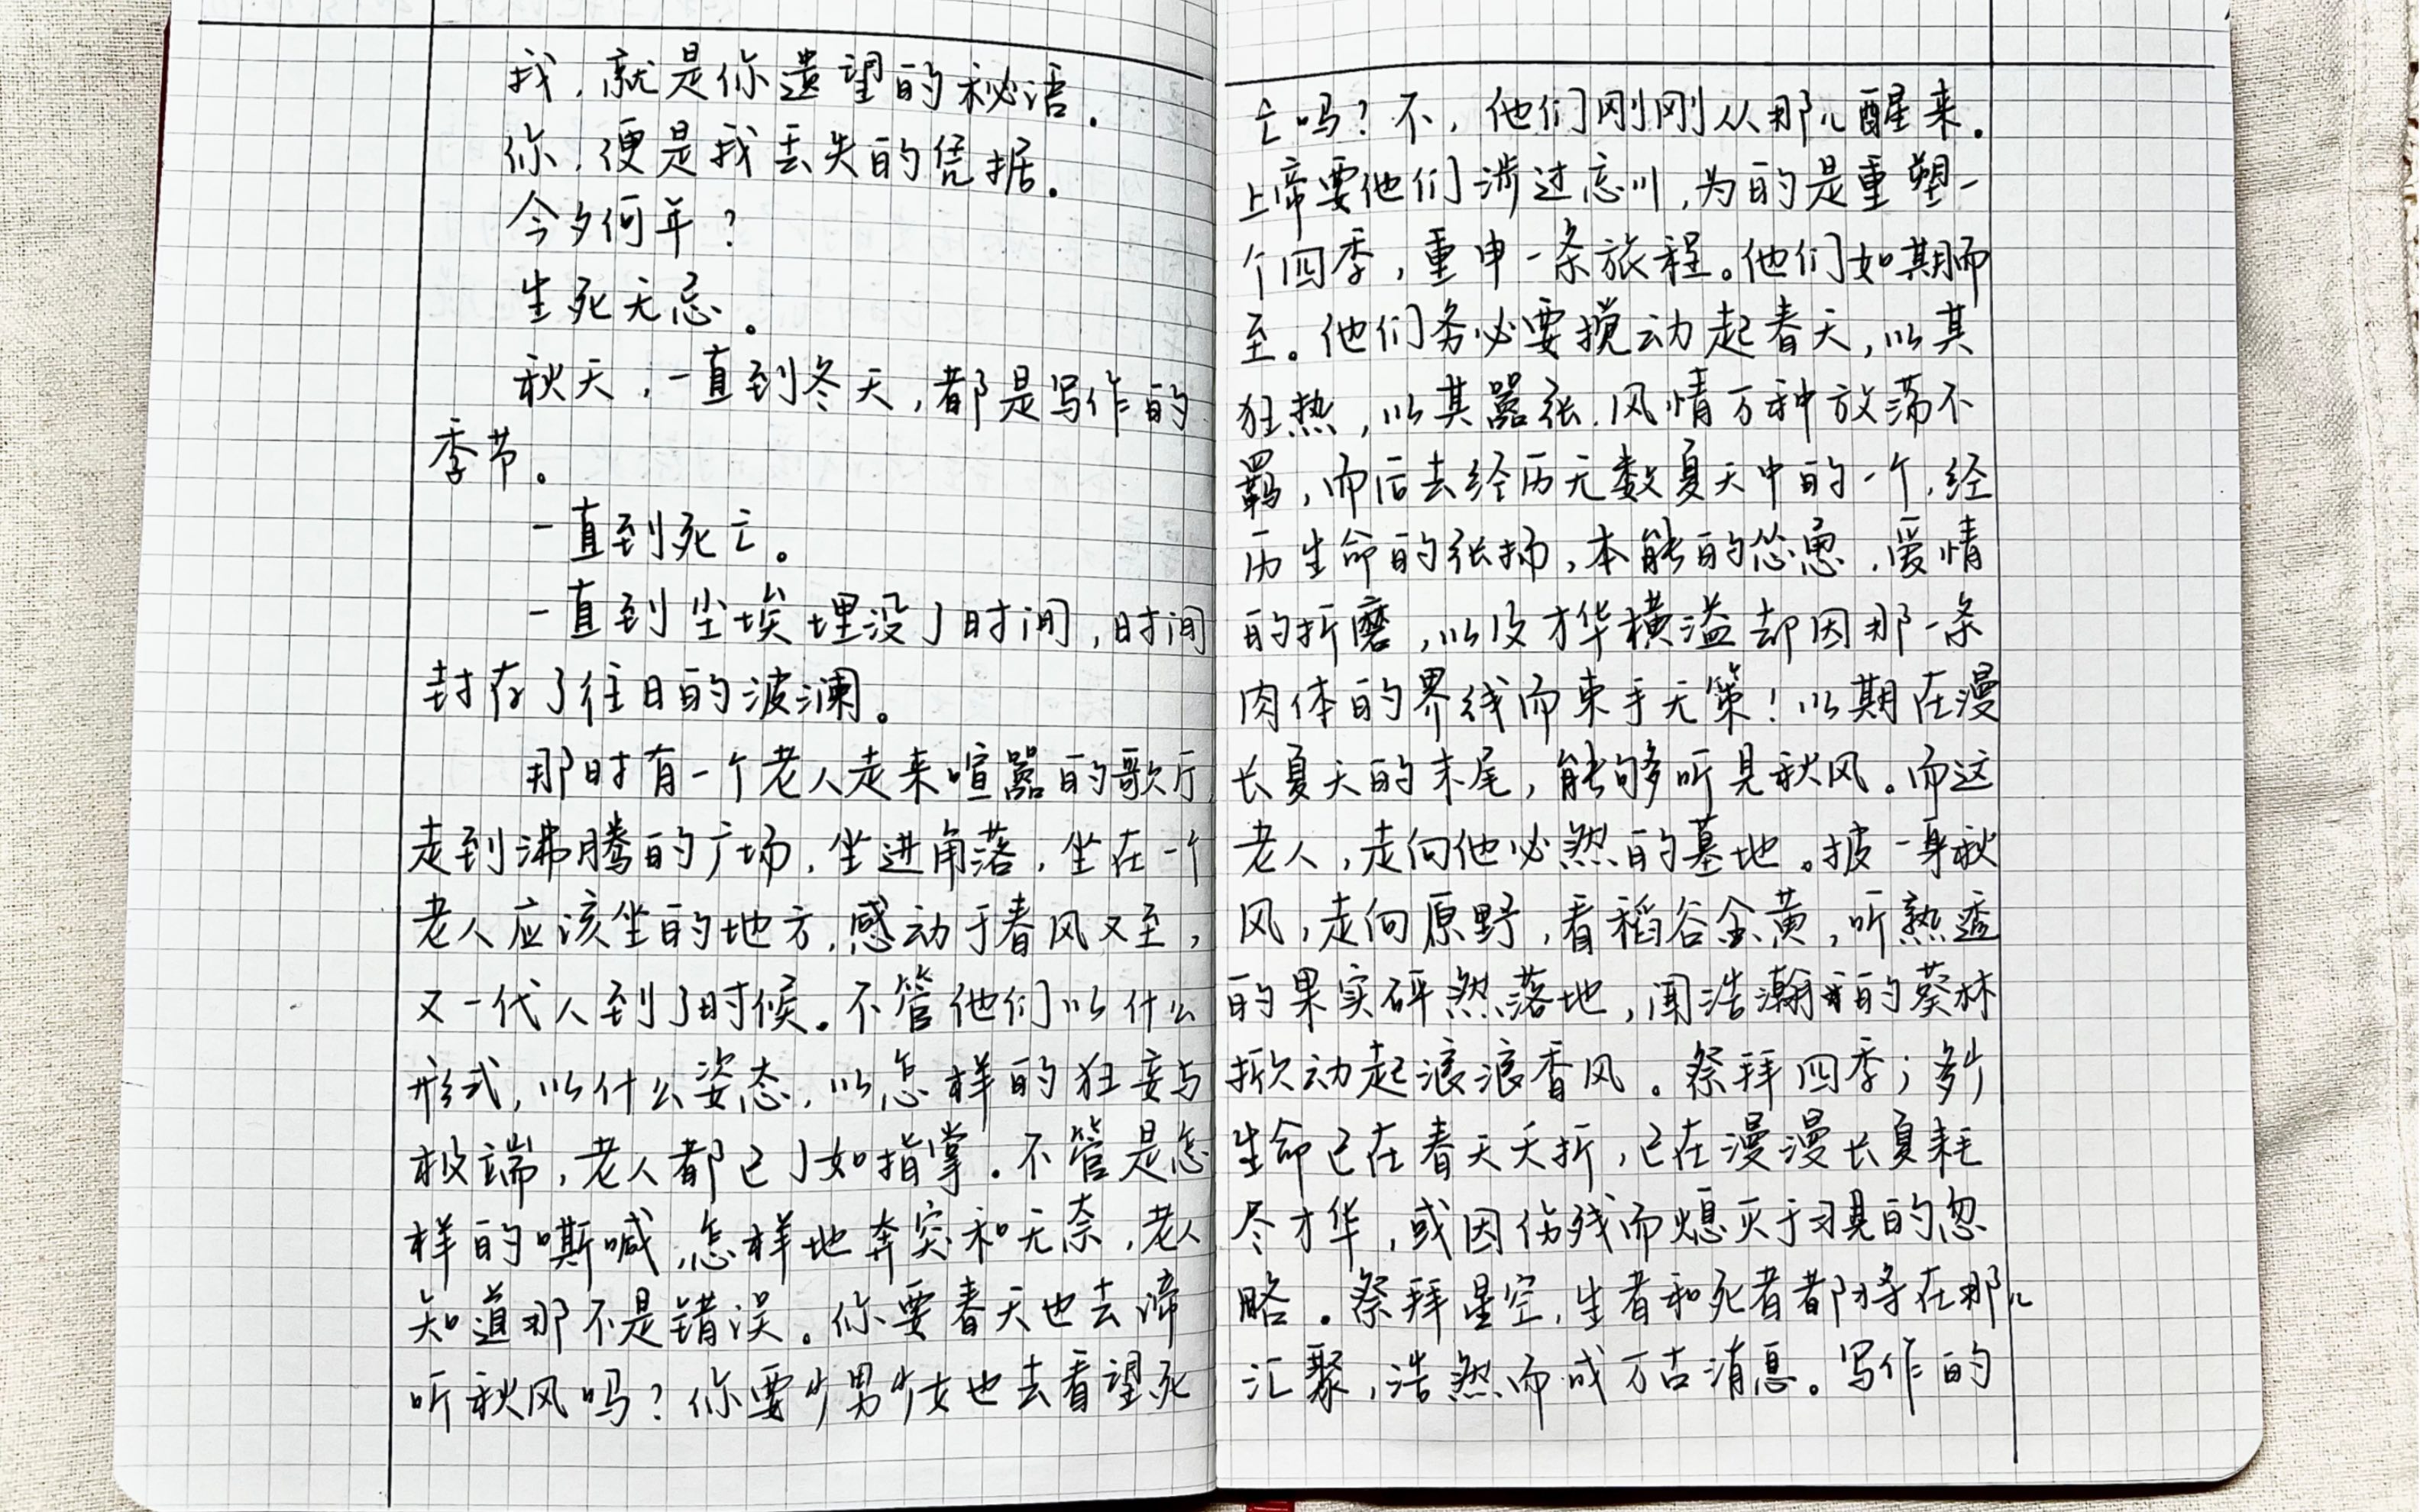 我，就是你遗望的秘语．
你，便是我丢失的凭据．
今夕何年？
生死无忌。
秋天，一直到冬天，都是写作的
季节。
一直到死亡。
一直到尘埃埋没了时间，时间
封存了往日的波澜。
那时有一个老人走来喧嚣的歌厅，
走到沸腾的广场，坐进角落，坐在一个
老人应该坐的地方，感动于春风又至，
又一代人到了时候。不管他们以什么
形式，以什么姿态，以怎样的狂妄与
极端，老人都已了如指掌．不管是怎
样的嘶喊，怎样地奔突和无奈，老人
知道那不是错误。你要春天也去谛
听秋风吗？你要少男少女也去看望死
亡吗？不，他们刚刚从那儿醒来．
上帝要他们涉过忘川，为的是重塑一
个四季，重申一条旅程。他们如期而
至。他们务必要搅动起春天，以其
狂热，以其嚣张，风情万种放荡不
羁，而后去经历无数夏天中的一个，经
历生命的张扬，本能的怂恿，爱情
的折磨，以及才华横溢却因那一条
肉体的界线而束手无策！以期在漫
长夏天的末尾，能够听见秋风。而这
老人，走向他必然的墓地。披一身秋
风，走向原野，看稻谷金黄，听熟透
的果实砰然落地，闻浩瀚的葵林
掀动起浪浪香风。祭拜四季；多少
生命已在春天夭折，已在漫漫长夏耗
尽才华，或因伤残而熄灭于习见的忽
略。祭拜星空，生者和死者都将在那儿
汇聚，浩然而成万古消息。写作的